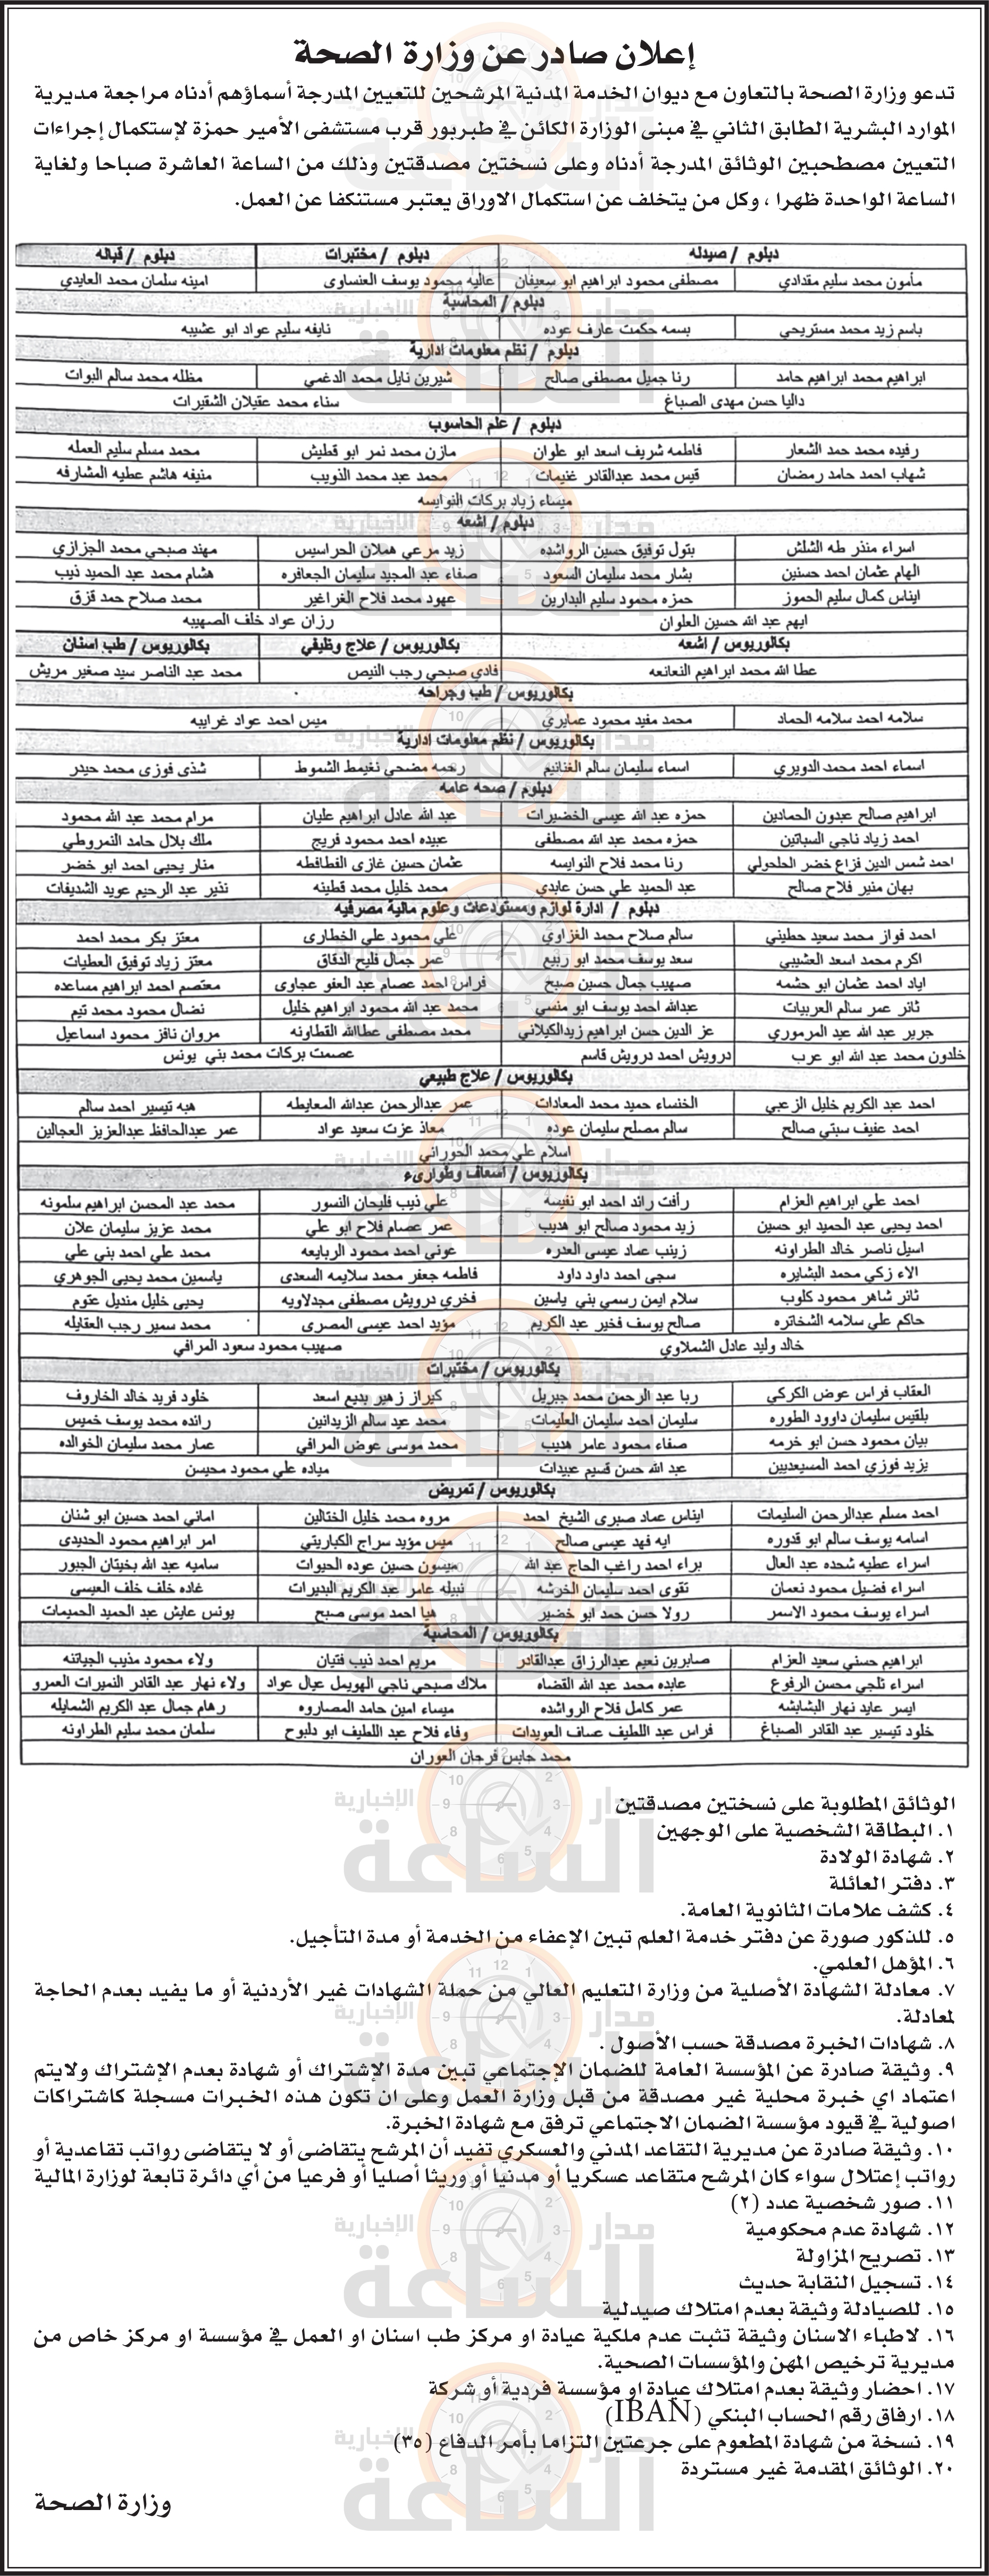 إعلان صادر عن وزارة الصحة
تدعو وزارة الصحة بالتعاون مع ديوان الخدمة المدنية المرشحين للتعيين المدرجة أسماؤهم أدناه مراجعة مديرية
الموارد البشرية الطابق الثاني في مبنى الوزارة الكائن في طبربور قرب مستشفى الأمير حمزة لإستكمال إجراءات
التعيين مصطحبين الوثائق المدرجة أدناه وعلى نسختين مصدقتين وذلك من الساعة العاشرة صباحا ولغاية
الساعة الواحدة ظهرا ، وكل من يتخلف عن استكمال الاوراق يعتبر مستنكفا عن العمل.
دبلوم / صيدله دبلوم / مختبرات دبلوم / قباله
مأمون محمد سليم مقدادي مصطفى محمود ابراهيم ابو سعيفان عاليه محمود يوسف العنساوى امينه سلمان محمد العايدي
دبلوم / المحاسبة
باسم زيد محمد مستريحي بسمه حكمت عارف عوده نايفه سليم عواد ابو عشيبه
دبلوم / نظم معلومات ادارية
ابراهيم محمد ابراهيم حامد رنا جميل مصطفى صالح شيرين نايل محمد الدغمي مظله محمد سالم البوات
داليا حسن مهدى الصباغ سناء محمد عقيلان الشقيرات
دبلوم / علم الحاسوب
رفيده محمد حمد الشعار فاطمه شريف اسعد ابو علوان مازن محمد نمر ابو قطيش محمد مسلم سليم العمله
شهاب احمد حامد رمضان قيس محمد عبدالقادر غنيمات محمد عبد محمد الذويب منيفه هاشم عطيه المشارفه
ميساء زياد بركات النوايسه
دبلوم / اشعه
اسراء منذر طه الشلش بتول توفيق حسين الرواشده زيد مرعي هملان الحراسيس مهند صبحي محمد الجزازي
الهام عثمان احمد حسنين بشار محمد سليمان السعود صفاء عبد المجيد سليمان الجعافره هشام محمد عبد الحميد ذيب
ايناس كمال سليم الحموز حمزه محمود سليم البدارين عهود محمد فلاح الغراغير محمد صلاح حمد قزق
ايهم عبد الله حسين العلوان رزان عواد خلف الصهيبه
بكالوريوس / اشعه بكالوريوس / علاج وظيفي بكالوريوس / طب اسنان
عطا الله محمد ابراهيم النعانعه فادي صبحي رجب النيص محمد عبد الناصر سيد صغير مريش
بكالوريوس / طب وجراحه
سلامه احمد سلامه الحماد محمد مفيد محمود عمايري ميس احمد عواد غرايبه
بكالوريوس / نظم معلومات ادارية
اسماء احمد محمد الدويري اسماء سليمان سالم الغنانيم رحمه مضحي نغيمط الشموط شذى فوزى محمد حيدر
دبلوم / صحه عامه
ابراهيم صالح عبدون الحمادين حمزه عبد الله عيسى الخضيرات عبد الله عادل ابراهيم عليان مرام محمد عبد الله محمود
احمد زياد ناجي السباتين حمزه محمد عبد الله مصطفى عبيده احمد محمود فريج ملك بلال حامد النمروطي
احمد شمس الدين قزاع خضر الحلحولي رنا محمد فلاح النوايسه عثمان حسين غازى القطاقطه منار يحيى احمد ابو خضر
بهان منير فلاح صالح عبد الحميد علي حسن عابدي محمد خليل محمد قطينه نذير عبد الرحيم عويد الشديفات
دبلوم / ادارة لوازم ومستودعات وعلوم مالية مصرفيه
احمد فواز محمد سعيد حطيني سالم صلاح محمد الغزاوي علي محمود علي الخطارى معتز بكر محمد احمد
اكرم محمد اسعد العشيبي سعد يوسف محمد ابو ربيع عمر جمال فليح الدقاق معتز زياد توفيق العطيات
اياد احمد عثمان ابو حشمه صهيب جمال حسين صبح فراس احمد عصام عبد العفو عجاوى معتصم احمد ابراهيم مساعده
ثائر عمر سالم العربيات عبدالله احمد يوسف ابو منسي محمد عبد الله محمود ابراهيم خليل نضال محمود محمد تيم
جرير عبد الله عيد المرموري عز الدين حسن ابراهيم زيدالكيلاني محمد مصطفى عطاالله القطاونه مروان نافز محمود اسماعيل
خلدون محمد عبد الله ابو عرب درويش احمد درويش قاسم عصمت بركات محمد بني يونس
بكالوريوس / علاج طبيعي
احمد عبد الكريم خليل الزعبي الخنساء حميد محمد المعادات عمر عبدالرحمن عبدالله المعايطه هبه تيسير احمد سالم
احمد عنيف سبتي صالح سالم مصلح سليمان عوده معاذ عزت سعيد عواد عمر عبدالحافظ عبدالعزيز العجالين
اسلام علي محمد الحوراني
بكالوريوس / اسعاف وطوارىء
احمد علي ابراهيم العزام رأفت رائد احمد ابو نفيسه علي ذيب فليحان النسور محمد عبد المحسن ابراهيم سلمونه
احمد يحيى عبد الحميد ابو حسين زيد محمود صالح ابو هديب عمر عصام فلاح ابو علي محمد عزيز سليمان علان
اسيل ناصر خالد الطراونه زينب عماد عيسى العدره عوني احمد محمود الربايعه محمد علي احمد بني علي
الاء زكي محمد البشايره سجى احمد داود داود فاطمه جعفر محمد سلايمه السعدى ياسمين محمد يحيى الجوهري
ثائر شاهر محمود كلوب سلام ايمن رسمي بني ياسين فخري درويش مصطفى مجدلاويه يحيى خليل منديل عتوم
حاكم علي سلامه الشخاتره صالح يوسف فخير عبد الكريم مؤيد احمد عيسى المصرى محمد سمير رجب العقايله
خالد وليد عادل الشملاوي صهيب محمود سعود المراقي
بكالوريوس / مختبرات
العقاب فراس عوض الكركي ربا عبد الرحمن محمد جبريل كيراز زهير بديع اسعد خلود فريد خالد الخاروف
بلقيس سليمان داوود الطوره سليمان احمد سليمان العليمات محمد عيد سالم الزيدانين رانده محمد يوسف خميس
بيان محمود حسن ابو خرمه صفاء محمود عامر هديب محمد موسى عوض المراقي عمار محمد سليمان الخوالده
يزيد فوزي احمد المسيعديين عبد الله حسن قسيم عبيدات مياده علي محمود محيسن
بكالوريوس / تمريض
احمد مسلم عبدالرحمن السليمات ايناس عماد صبرى الشيخ احمد مروه محمد خليل الختالين اماني احمد حسين ابو شنان
اسامه يوسف سالم ابو قدوره ايه فهد عيسى صالح ميس مؤيد سراج الكباريتي امر ابراهيم محمود الحديدى
اسراء عطيه شحده عبد العال براء احمد راغب الحاج عبد الله ميسون حسين عوده الحيوات ساميه عبد الله بخيتان الجبور
اسراء فضيل محمود نعمان تقوى احمد سليمان الخرشه نبيله عامر عبد الكريم البديرات غاده خلف خلف العيسى
اسراء يوسف محمود الاسمر رولا حسن حمد ابو خضير هيا احمد موسى صبح يونس عايش عبد الحميد الحميمات
بكالوريوس / المحاسبة
ابراهيم حسني سعيد العزام صابرين نعيم عبدالرزاق عبدالقادر مريم احمد نيب فتيان ولاء محمود مذيب الجياتنه
اسراء ثلجي محسن الرفوع عابده محمد عبد الله القضاه ملاك صبحي ناجي الهويمل عيال عواد ولاء نهار عبد القادر النميرات العمرو
ايسر عايد نهار البشابشه عمر كامل فلاح الرواشده ميساء امين حامد المصاروه رهام جمال عبد الكريم الشمايله
خلود تيسير عبد القادر الصباغ فراس عبد اللطيف عساف العويدات وفاء فلاح عبد اللطيف ابو دلبوح سلمان محمد سليم الطراونه
محمد حابس فرحان العوران
الوثائق المطلوبة على نسختين مصدقتين
١. البطاقة الشخصية على الوجهين
٢. شهادة الولادة
٣. دفتر العائلة
٤. كشف علامات الثانوية العامة.
٥. للذكور صورة عن دفتر خدمة العلم تبين الإعفاء من الخدمة أو مدة التأجيل.
٦. المؤهل العلمي.
٧. معادلة الشهادة الأصلية من وزارة التعليم العالي من حملة الشهادات غير الأردنية أو ما يفيد بعدم الحاجة
لمعادلة.
٨. شهادات الخبرة مصدقة حسب الأصول .
٩. وثيقة صادرة عن المؤسسة العامة للضمان الإجتماعي تبين مدة الإشتراك أو شهادة بعدم الإشتراك ولايتم
اعتماد اي خبرة محلية غير مصدقة من قبل وزارة العمل وعلى ان تكون هذه الخبرات مسجلة كاشتراكات
اصولية في قيود مؤسسة الضمان الاجتماعي ترفق مع شهادة الخبرة.
١٠. وثيقة صادرة عن مديرية التقاعد المدني والعسكري تفيد أن المرشح يتقاضى أو لا يتقاضى رواتب تقاعدية أو
رواتب إعتلال سواء كان المرشح متقاعد عسكريا أو مدنيا أو وريثا أصليا أو فرعيا من أي دائرة تابعة لوزارة المالية
١١. صور شخصية عدد (٢)
١٢. شهادة عدم محكومية
١٣. تصريح المزاولة
١٤. تسجيل النقابة حديث
١٥. للصيادلة وثيقة بعدم امتلاك صيدلية
١٦. لاطباء الاسنان وثيقة تثبت عدم ملكية عيادة او مركز طب اسنان او العمل في مؤسسة او مركز خاص من
مديرية ترخيص المهن والمؤسسات الصحية.
١٧. احضار وثيقة بعدم امتلاك عيادة او مؤسسة فردية أو شركة
١٨. ارفاق رقم الحساب البنكي (IBAN)
١٩. نسخة من شهادة المطعوم على جرعتين التزاما بأمر الدفاع (٣٥)
٢٠. الوثائق المقدمة غير مستردة
وزارة الصحة